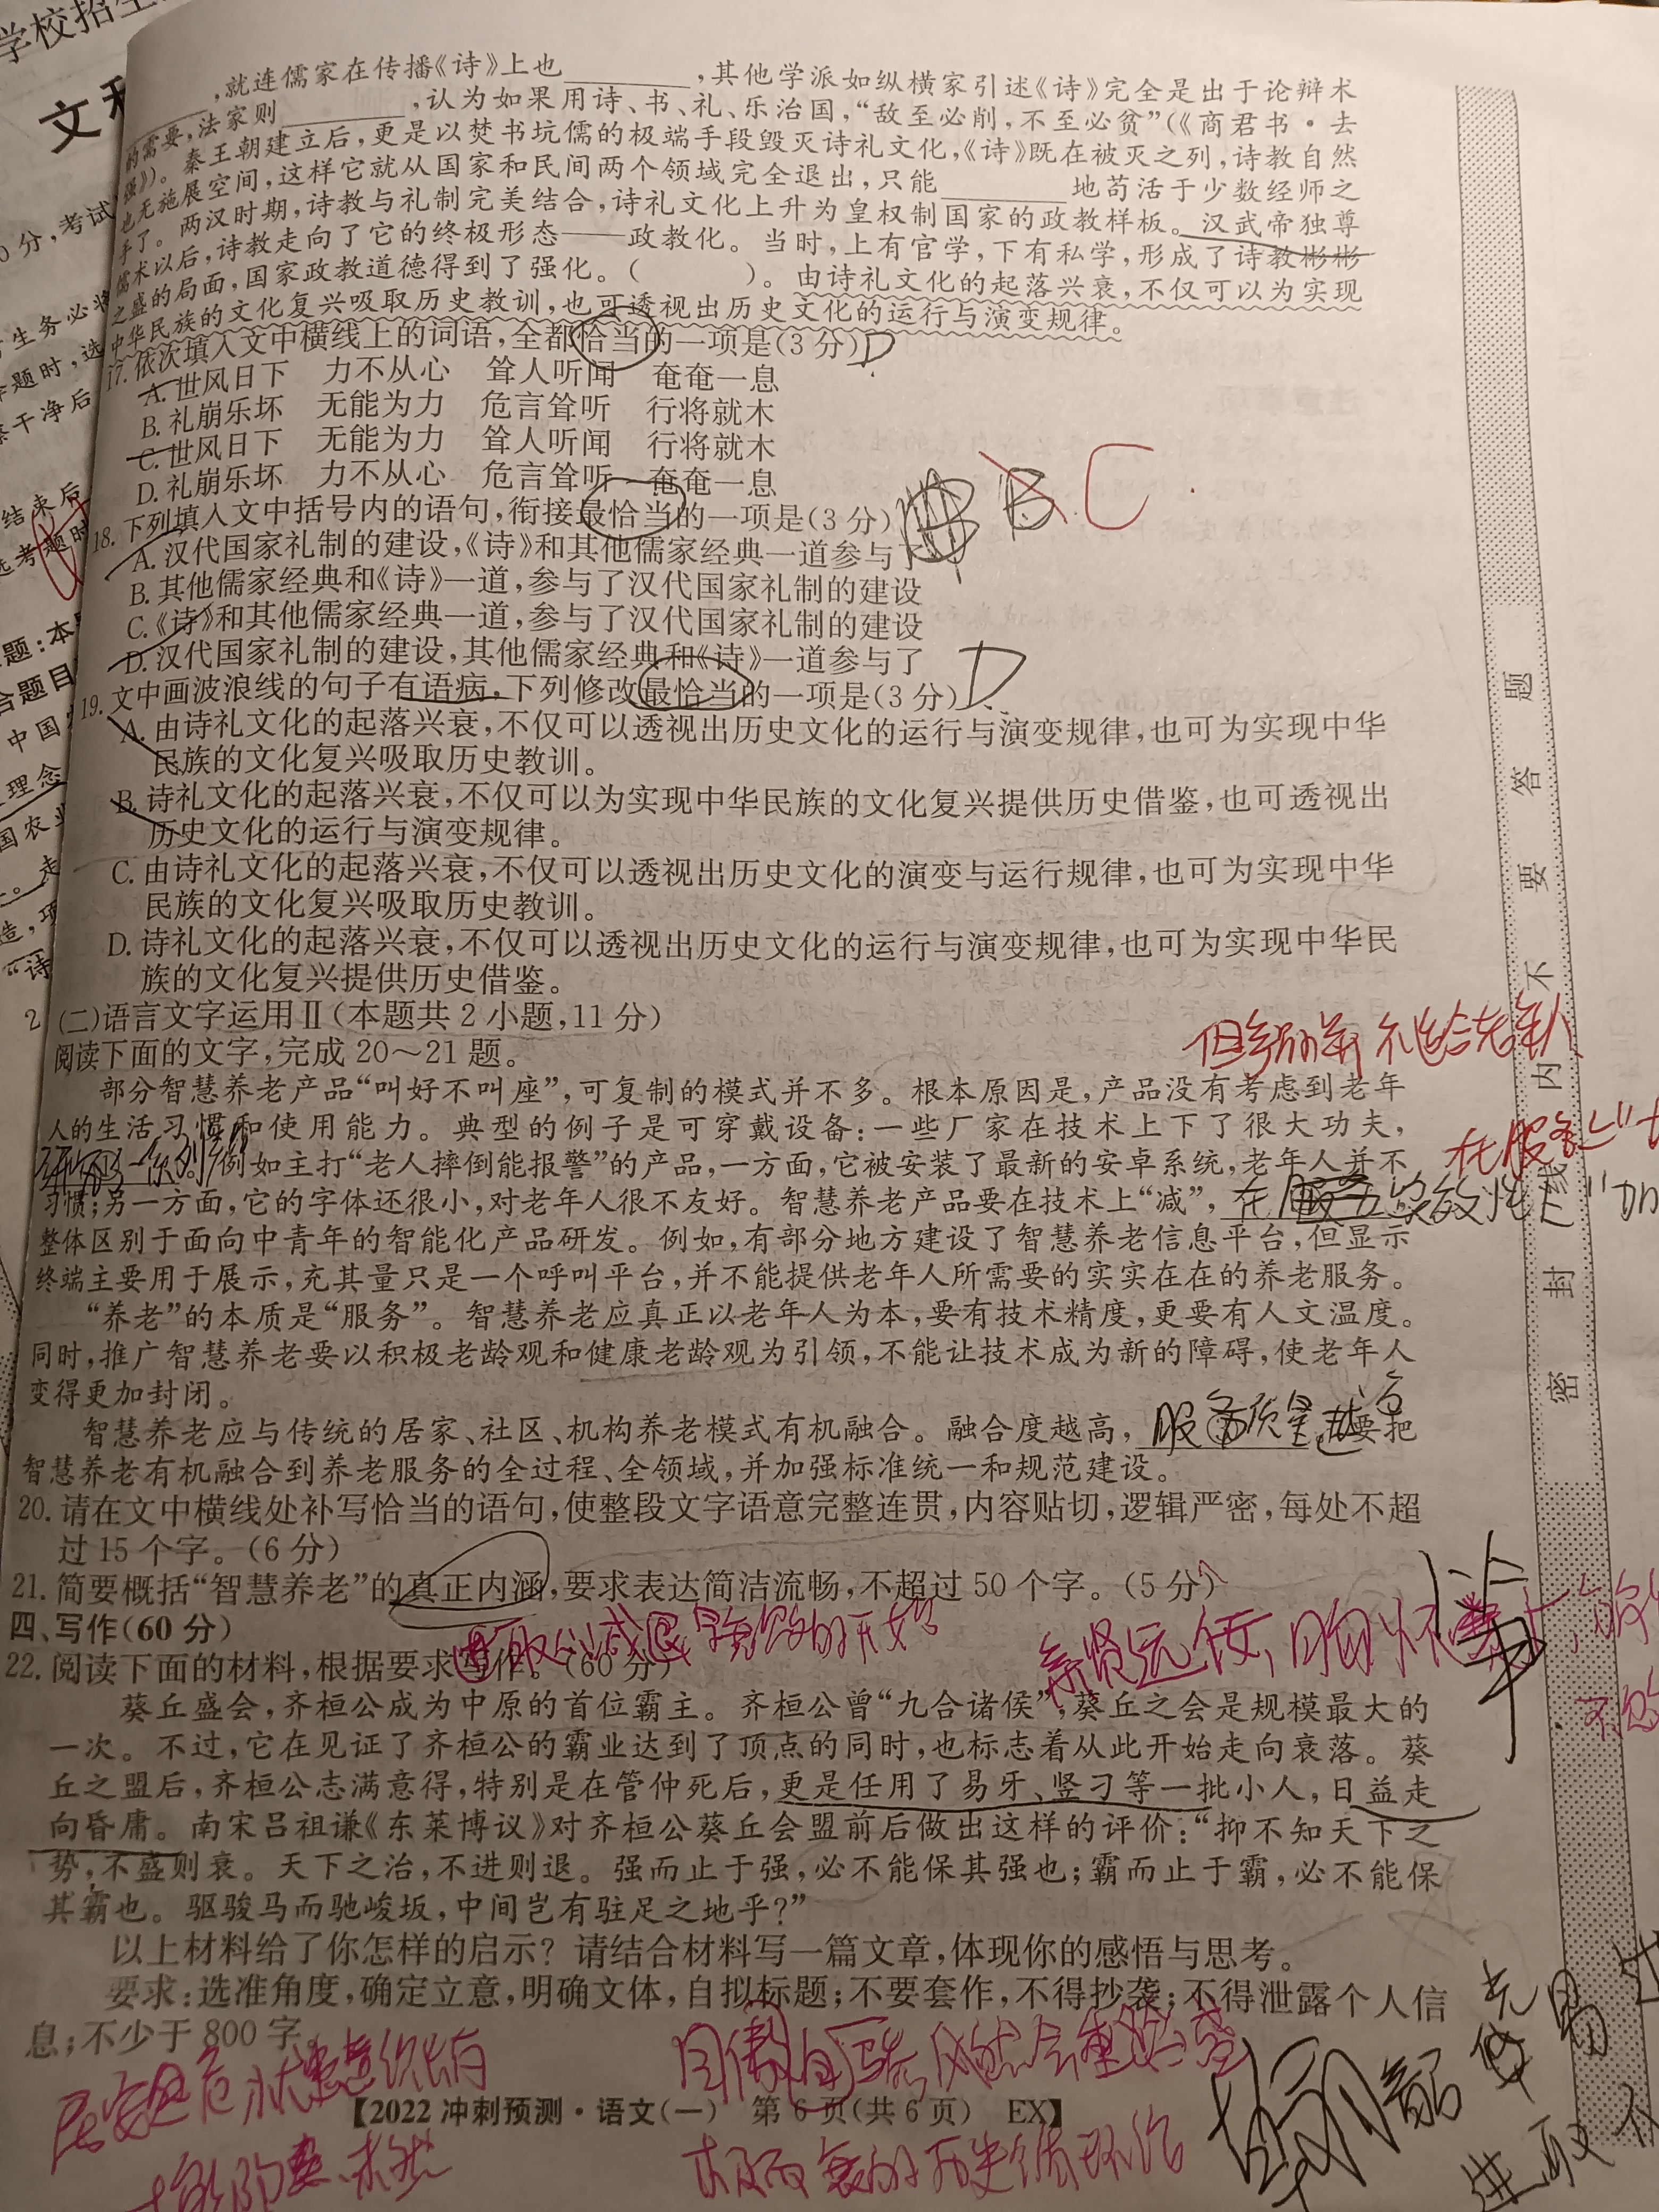 学校招生
文科
0分,考试
，就连儒家在传播《诗》上也　　　　，其他学派如纵横家引述《诗》完全是出于论辩术
的需要，法家则　　　　，认为如果用诗、书、礼、乐治国，“敌至必削，不至必贫”（《商君书·去
强》）。秦王朝建立后，更是以焚书坑儒的极端手段毁灭诗礼文化，《诗》既在被灭之列，诗教自然
也无施展空间，这样它就从国家和民间两个领域完全退出，只能　　　　地苟活于少数经师之
手了。两汉时期，诗教与礼制完美结合，诗礼文化上升为皇权制国家的政教样板。汉武帝独尊
儒术以后，诗教走向了它的终极形态——政教化。当时，上有官学，下有私学，形成了诗教彬彬
之盛的局面，国家政教道德得到了强化。（　　　）。由诗礼文化的起落兴衰，不仅可以为实现
中华民族的文化复兴吸取历史教训，也可透视出历史文化的运行与演变规律。
17. 依次填入文中横线上的词语，全都恰当的一项是（3分）D
A. 世风日下　力不从心　耸人听闻　奄奄一息
B. 礼崩乐坏　无能为力　危言耸听　行将就木
C. 世风日下　无能为力　耸人听闻　行将就木
D. 礼崩乐坏　力不从心　危言耸听　奄奄一息
18. 下列填入文中括号内的语句，衔接最恰当的一项是（3分）B C
A. 汉代国家礼制的建设，《诗》和其他儒家经典一道参与了
B. 其他儒家经典和《诗》一道，参与了汉代国家礼制的建设
C.《诗》和其他儒家经典一道，参与了汉代国家礼制的建设
D. 汉代国家礼制的建设，其他儒家经典和《诗》一道参与了
19. 文中画波浪线的句子有语病，下列修改最恰当的一项是（3分）D
A. 由诗礼文化的起落兴衰，不仅可以透视出历史文化的运行与演变规律，也可为实现中华
民族的文化复兴吸取历史教训。
B. 诗礼文化的起落兴衰，不仅可以为实现中华民族的文化复兴提供历史借鉴，也可透视出
历史文化的运行与演变规律。
C. 由诗礼文化的起落兴衰，不仅可以透视出历史文化的演变与运行规律，也可为实现中华
民族的文化复兴吸取历史教训。
D. 诗礼文化的起落兴衰，不仅可以透视出历史文化的运行与演变规律，也可为实现中华民
族的文化复兴提供历史借鉴。
(二)语言文字运用Ⅱ（本题共2小题，11分）
阅读下面的文字，完成20～21题。
部分智慧养老产品“叫好不叫座”，可复制的模式并不多。根本原因是，产品没有考虑到老年
人的生活习惯和使用能力。典型的例子是可穿戴设备：一些厂家在技术上下了很大功夫，
例如主打“老人摔倒能报警”的产品，一方面，它被安装了最新的安卓系统，老年人并不
习惯；另一方面，它的字体还很小，对老年人很不友好。智慧养老产品要在技术上“减”，
整体区别于面向中青年的智能化产品研发。例如，有部分地方建设了智慧养老信息平台，但显示
终端主要用于展示，充其量只是一个呼叫平台，并不能提供老年人所需要的实实在在的养老服务。
“养老”的本质是“服务”。智慧养老应真正以老年人为本，要有技术精度，更要有人文温度。
同时，推广智慧养老要以积极老龄观和健康老龄观为引领，不能让技术成为新的障碍，使老年人
变得更加封闭。
智慧养老应与传统的居家、社区、机构养老模式有机融合。融合度越高，服务质量越高要把
智慧养老有机融合到养老服务的全过程、全领域，并加强标准统一和规范建设。
20. 请在文中横线处补写恰当的语句，使整段文字语意完整连贯，内容贴切，逻辑严密，每处不超
过15个字。（6分）
21. 简要概括“智慧养老”的真正内涵，要求表达简洁流畅，不超过50个字。（5分）
四、写作（60分）
22. 阅读下面的材料，根据要求写作。（60分）
葵丘盛会，齐桓公成为中原的首位霸主。齐桓公曾“九合诸侯”，葵丘之会是规模最大的
一次。不过，它在见证了齐桓公的霸业达到了顶点的同时，也标志着从此开始走向衰落。葵
丘之盟后，齐桓公志满意得，特别是在管仲死后，更是任用了易牙、竖刁等一批小人，日益走
向昏庸。南宋吕祖谦《东莱博议》对齐桓公葵丘会盟前后做出这样的评价：“抑不知天下之
势，不盛则衰。天下之治，不进则退。强而止于强，必不能保其强也；霸而止于霸，必不能保
其霸也。驱骏马而驰峻坂，中间岂有驻足之地乎？”
以上材料给了你怎样的启示？请结合材料写一篇文章，体现你的感悟与思考。
要求：选准角度，确定立意，明确文体，自拟标题；不要套作，不得抄袭；不得泄露个人信
息；不少于800字。
【2022冲刺预测·语文（一）　第6页（共6页）　EX】
密 封 线 内 不 要 答 题